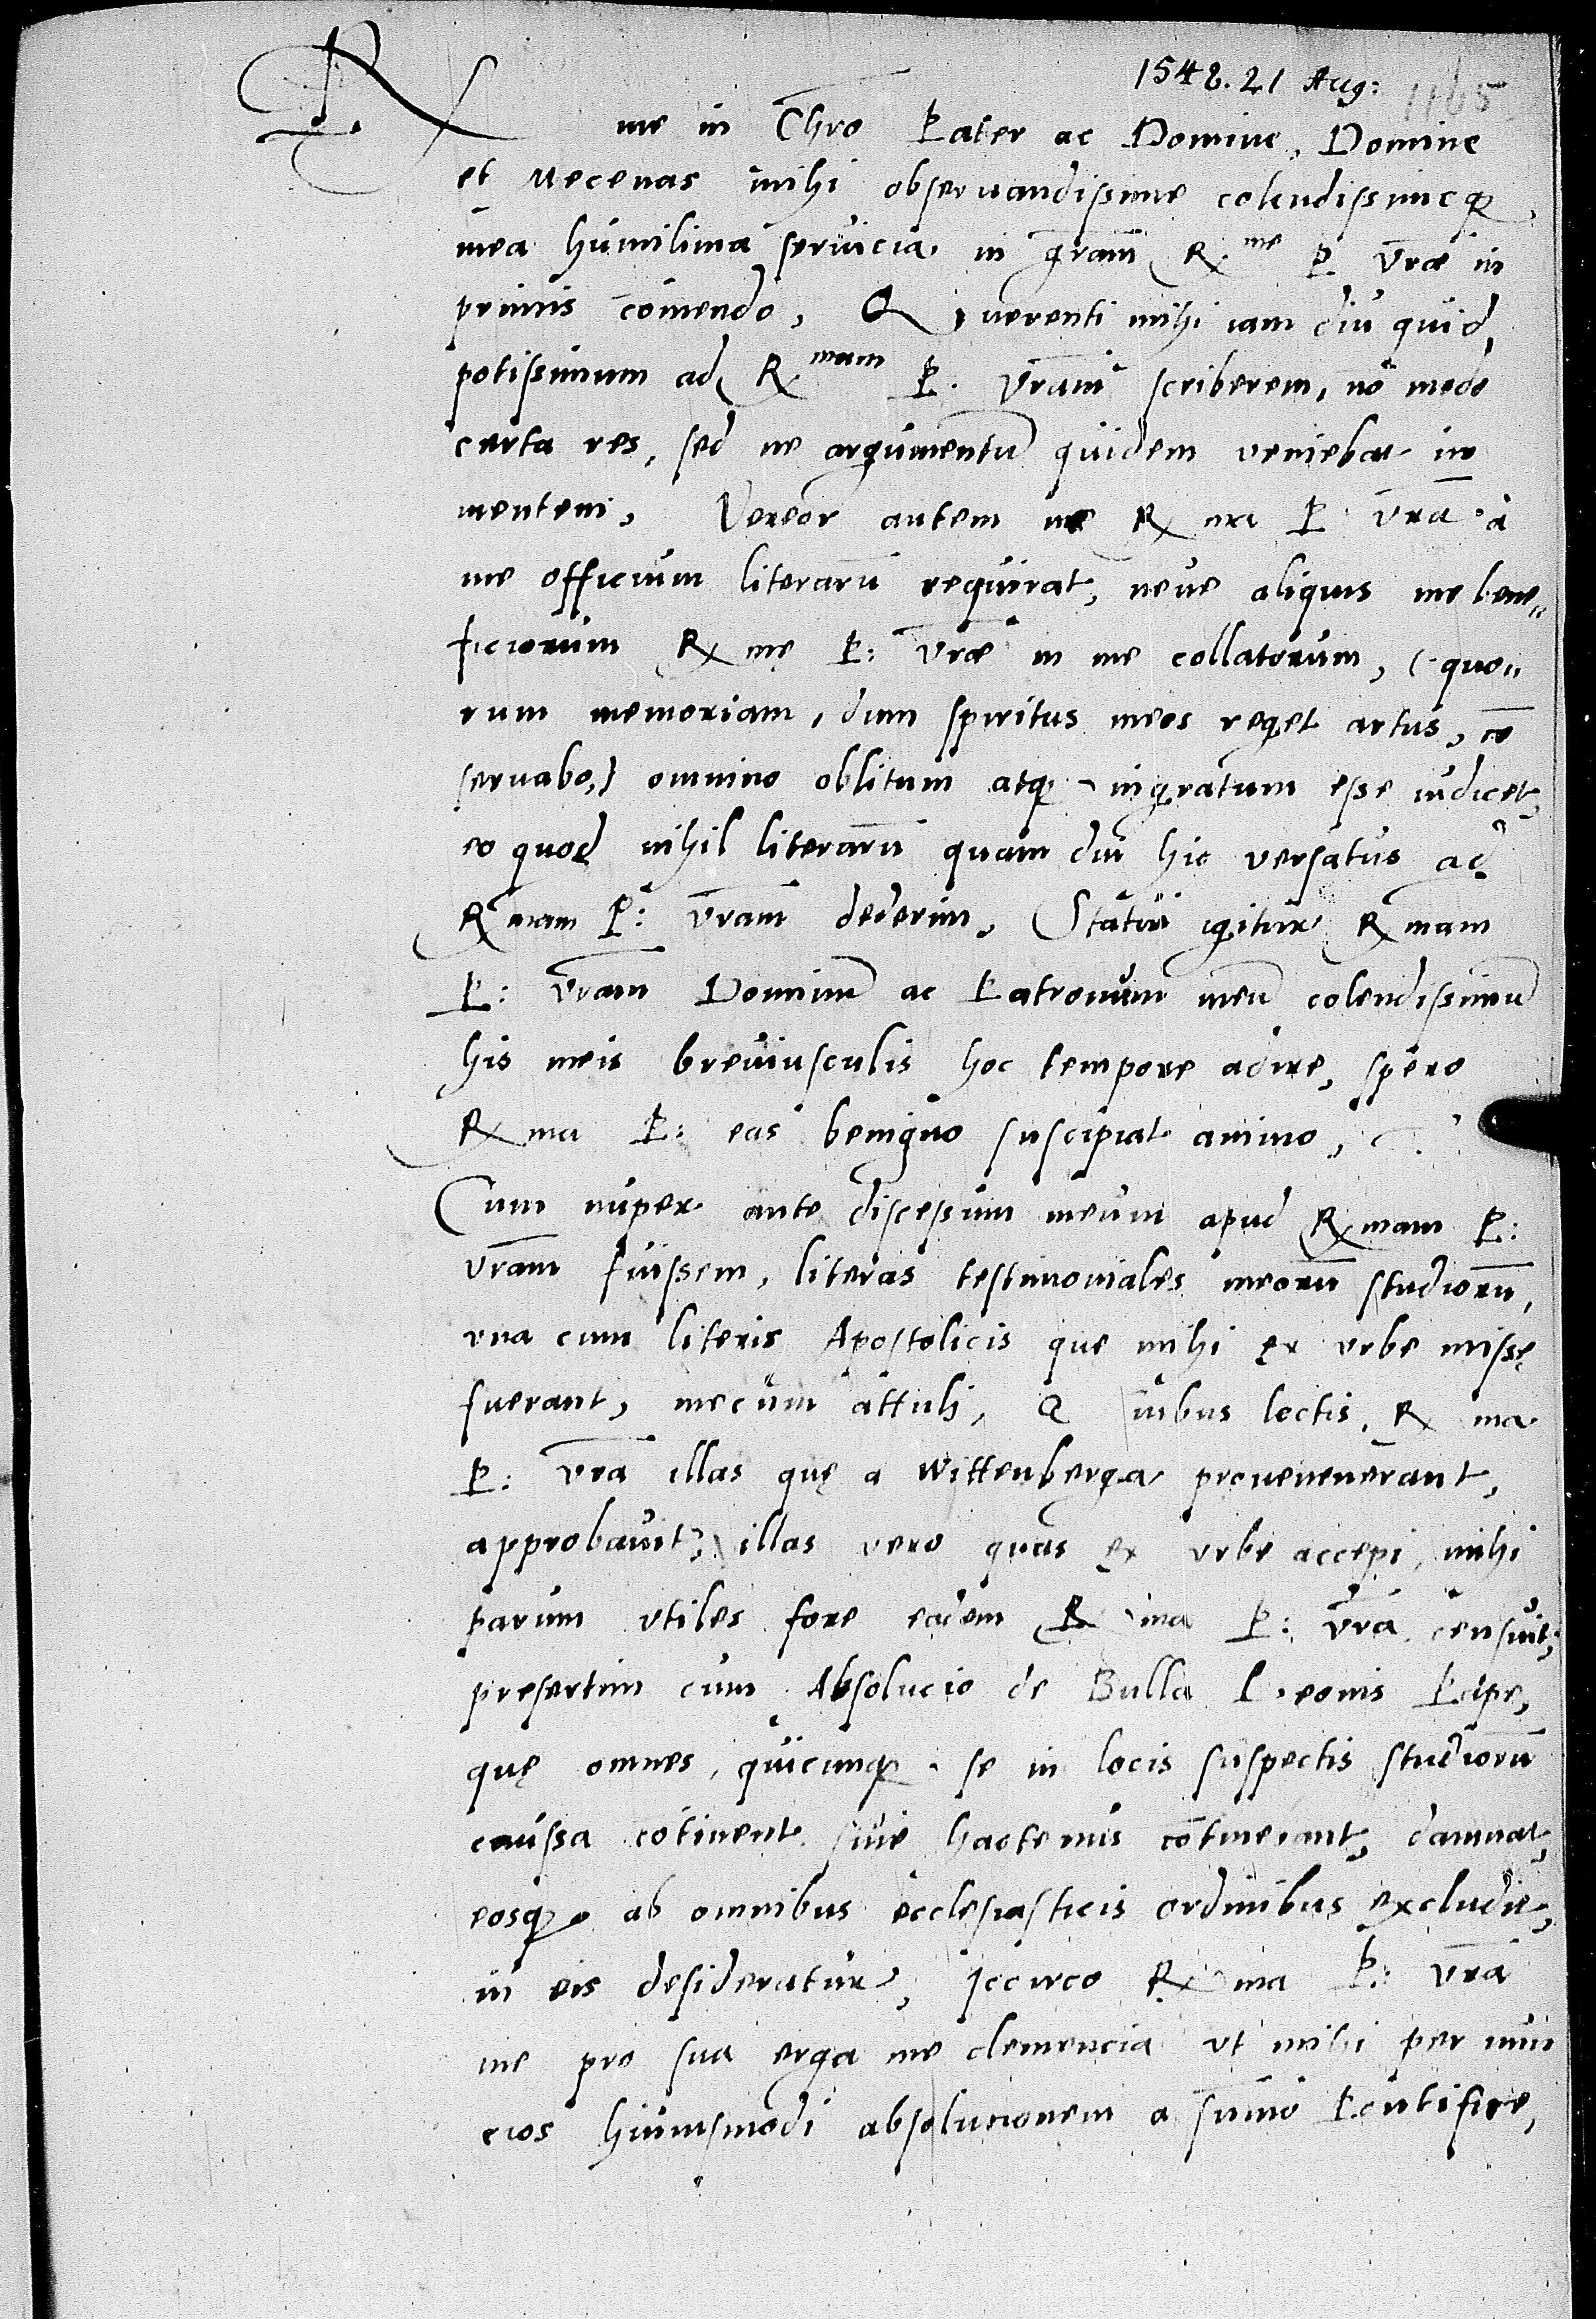 1548. 21 Aug:
1165
Rx me in Chro Pater ac Domine, Domine
et Mecenas mihi obseruandissime colendissimeq3
mea humilima seruicia in gram R.me P. vrae in
primis comendo, Querenti mihi iam diu quid
potissimum ad R.mam P. Vram scriberem, no modo
certa res, sed ne argumentu quidem veniebat in
mentem, Vereor autem ne Rx ma P. vra à
me officium literaru requirat, neue aliquis me bene„
ficiorum Rx me P: vrae in me collatorum, (quo„
rum memoriam, dum spiritus meos reget artus, co
seruabo,) omnino oblitum atq3 ingratum esse iudicet,
eo quod nihil literaru quam diu hic versatus ad
Rmam P: vram dederim, Statui igitur Rxmam
P: Vram Dominu ac Patronum meu colendissimu
his meis breuiusculis hoc tempore adire, spero
Rxma P: eas benigno suscipiat animo,
Cum nuper ante discessum meum apud Rxmam P:
vram fuissem, literas testimoniales meoru studioru,
vna cum literis Apostolicis que mihi ex vrbe missę
fuerant, mecum attuli, Quibus lectis, Rx ma
P: vra illas quę a Wittenberga prouenerant,
approbauit, illas vero quas ex vrbe accepi, mihi
parum vtiles fore eadem Rx ma P: vra censuit,
presertim cum Absolucio de Bulla Leonis Pape,
quę omnes, quicunq3 se in locis suspectis studioru
caussa cotinent siue hactenus cotinerant, damnat,
eosq3 ab omnibus ecclesiasticis ordinibus excludit,
in eis desideratur, Jccirco Rx ma P: vra
me pro sua erga me clemencia vt mihi per nun
cios huiusmodi absolucionem a sumo Pontifice,